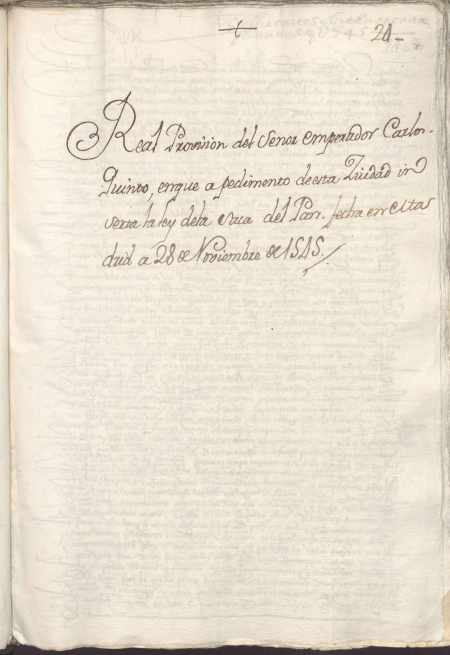 20
Real Provision del Senor emperador Carlos
Quinto, en que a pedimento de esta Ziudad in
serta la ley de la del Pan. fecha en el Ma
drid a 28 de Noviembre de 1545.